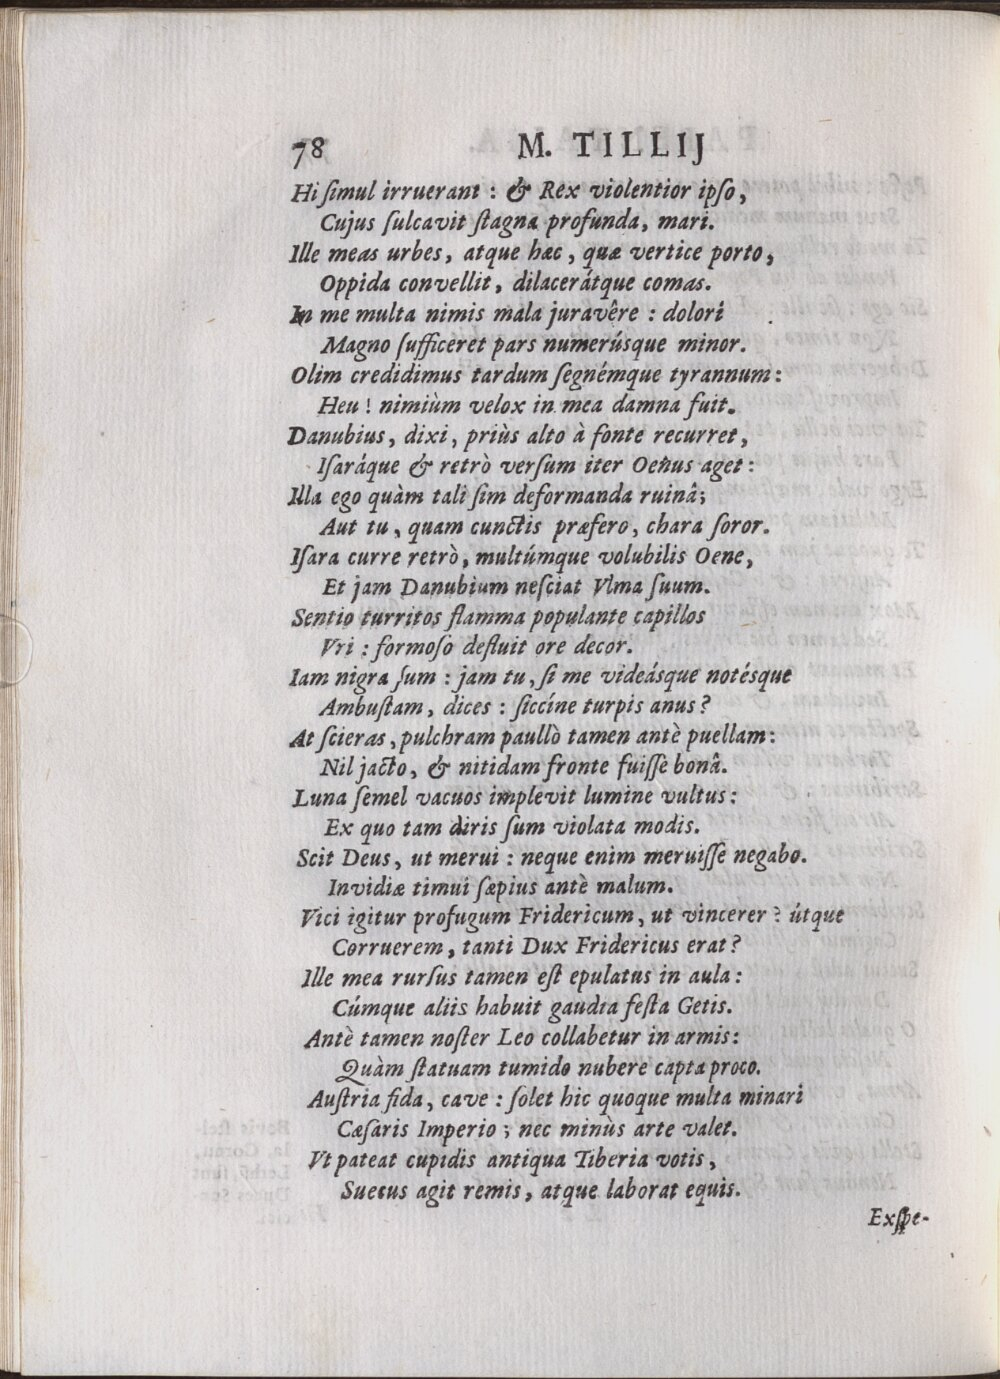 78 M. TILLIJ
Hi ſimul irruerant : & Rex violentior ipſo,
Cujus ſulcavit ſtagna profunda, mari.
Ille meas urbes, atque hæc, quæ vertice porto,
Oppida convellit, dilacerátque comas.
In me multa nimis mala juravêre : dolori
Magno ſufficeret pars numerúsque minor.
Olim credidimus tardum ſegnémque tyrannum :
Heu ! nimiùm velox in mea damna fuit.
Danubius, dixi, priùs alto à fonte recurret,
Iſaráque & retrò verſum iter Oeñus aget :
Illa ego quàm tali ſim deformanda ruinâ;
Aut tu, quam cunctis præfero, chara ſoror.
Iſara curre retrò, multúmque volubilis Oene,
Et jam Danubium neſciat Vlma ſuum.
Sentio turritos flamma populante capillos
Vri : formoſo defluit ore decor.
Iam nigra ſum : jam tu, ſi me videásque notésque
Ambuſtam, dices : ſiccíne turpis anus ?
At ſcieras, pulchram paullò tamen antè puellam :
Nil jacto, & nitidam fronte fuiſſe bonâ.
Luna ſemel vacuos implevit lumine vultus :
Ex quo tam diris ſum violata modis.
Scit Deus, ut merui : neque enim meruiſſe negabo.
Invidiæ timui ſæpius antè malum.
Vici igitur profugum Fridericum, ut vincerer ? útque
Corruerem, tanti Dux Fridericus erat ?
Ille mea rurſus tamen eſt epulatus in aula :
Cúmque aliis habuit gaudia feſta Getis.
Antè tamen noſter Leo collabetur in armis :
Quàm ſtatuam tumido nubere capta proco.
Auſtria fida, cave : ſolet hic quoque multa minari
Cæſaris Imperio ; nec minùs arte valet.
Vt pateat cupidis antiqua Tiberia votis,
Suecus agit remis, atque laborat equis.
Exſpe-